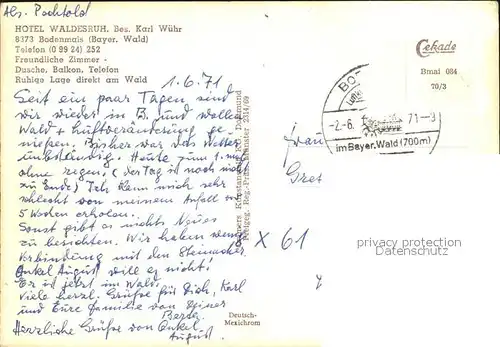 Abs. Pachtold
HOTEL WALDESRUH, Bes. Karl Wühr
8373 Bodenmais (Bayer. Wald)
Telefon (0 99 24) 252
Freundliche Zimmer -
Dusche, Balkon, Telefon
Ruhige Lage direkt am Wald
1.6.71
Seit ein paar Tagen sind
wir wieder in B. und wollen
Wald + Luftveränderung ge-
nießen. Bisher war das Wetter
unbeständig. Heute zum 1. mal
ohne regen, (der Tag ist noch nicht
zu Ende) Ich kann mich sehr
schlecht von meinem Anfall vor
5 Wochen erholen.
Sonst gibt es nichts Neues
zu berichten. Wir haben wenig
Verbindung mit den Steinacher
Onkel August will es nicht!
Er ist jetzt im Wald.
Viele herzl. Grüße für Dich, Karl
und Eure Familie von Deiner
Berta
Herzliche Grüße von Onkel
August
Cekade
Bmai 084
70/3
BO
Luft
-2.-6. 71-9
im Bayer. Wald (700m)
Frau
Gret
x 61
privacy protection
Datenschutz
Deutsch-
Mexichrom